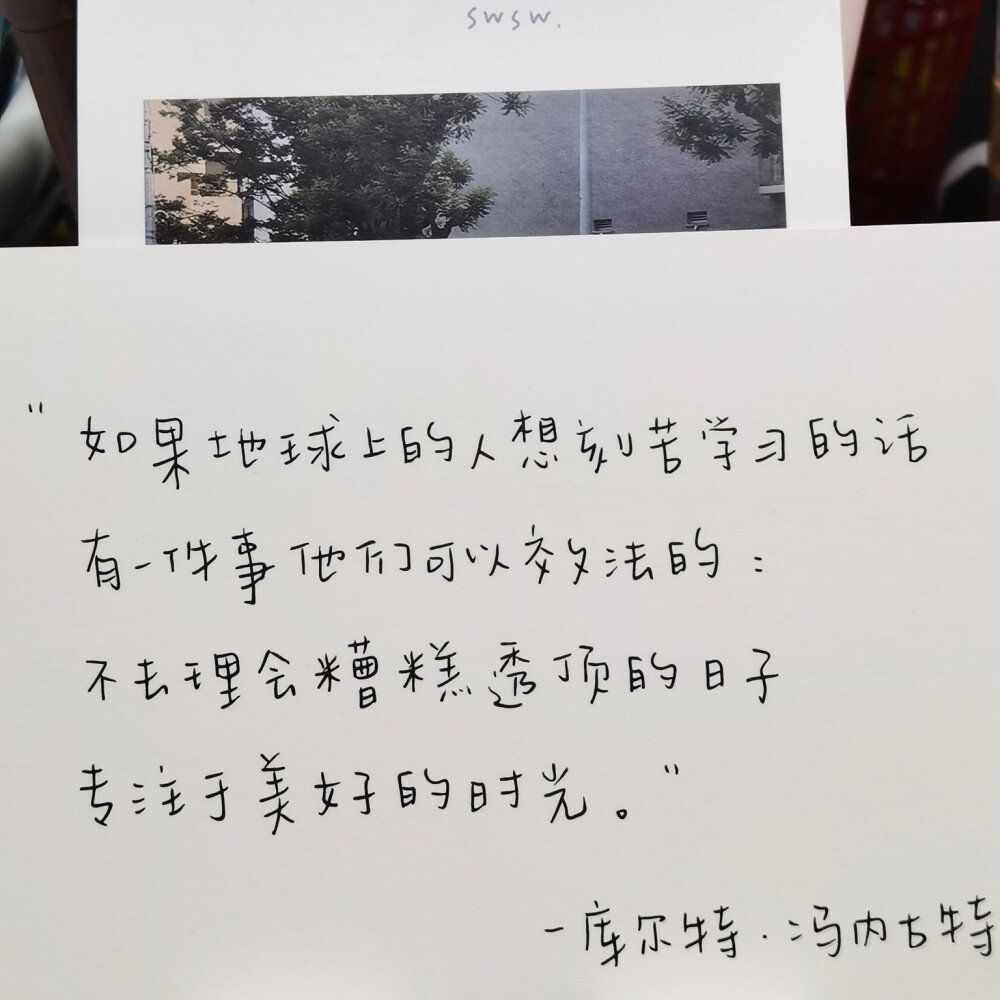 swsw.
"如果地球上的人想刻苦学习的话
有一件事他们可以效法的:
不去理会糟糕透顶的日子
专注于美好的时光。"
-库尔特·冯内古特